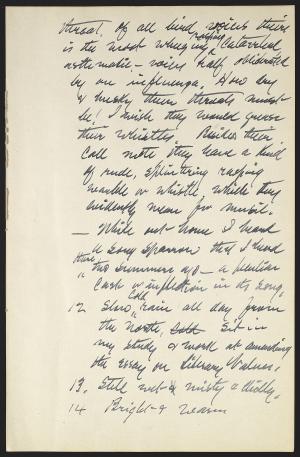 throat, of all bird voices theirs
is the most wheezing, rasping, Catarrhal
asthmatic - voices half obliterated
by an influenza. How dry
& husky their throats must
be! I wish they would grease
their whistles. Besides their
Call note they have a kind
of rude, splintering rasping
warble or whistle which they
evidently mean for music.
- While out home I heard
a song sparrow that I heard
there two summers ago - a peculiar
Cash or inflection in its song.
12 Slow, Cold rain all day from
the north, cold. Sit in
my study & work at amending
the essay on Literary Values.
13. Still wet & misty & chilly.
14 Bright & warm